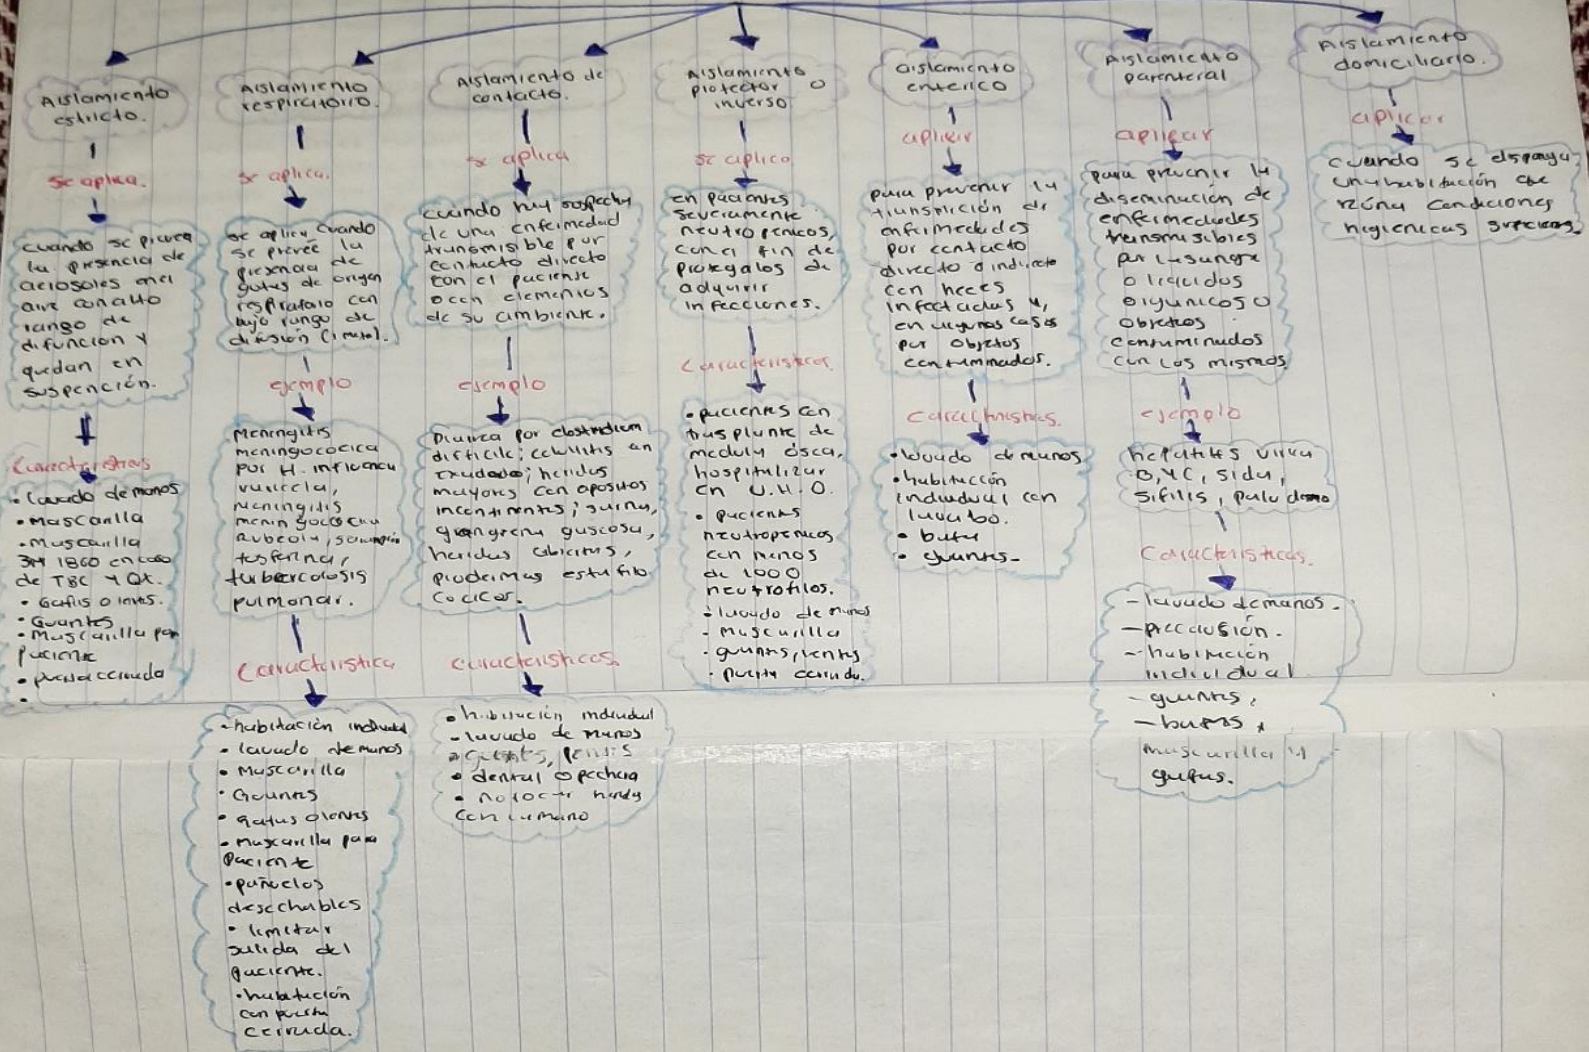 Aislamiento
estricto.
se aplica.
cuando se prevea
la presencia de
aerosoles en el
aire con alto
rango de
difunción y
quedan en
suspención.
Características
• lavado de manos
• Mascarilla
• Mascarilla
3M 1860 en caso
de TBC y
• Gafas o lentes.
• Guantes
• Mascarilla para
paciente
• puerta cerrada
•
Aislamiento
respiratorio.
se aplica.
se aplica cuando
se prevee la
presencia de
gotas de origen
respiratorio con
bajo rango de
difusión (1 metro).
ejemplo
Meningitis
meningococica
por H. influenza
varicela,
meningitis
meningococica
Rubeola, sarampión
tosferina,
tuberculosis
pulmonar.
Caracteristica
• habitación individual
• lavado de manos
• Mascarilla
• Guantes
• gafas o lentes
• Mascarilla para
paciente
• pañuelos
desechables
• limitar
salida del
paciente.
• habitación
con puerta
cerrada.
Aislamiento de
contacto.
se aplica
cuando hay sospecha
de una enfermedad
transmisible por
contacto directo
con el paciente
o con elementos
de su ambiente.
ejemplo
Diarrea por clostridium
dificile; celulitis
exudado; heridas
mayores con apositos
incontinentes; sarna,
gangrena gaseosa,
heridas abiertas,
estafilo
cocicas.
características.
• habitación individual
• lavado de manos
• guantes, lentes
• delantal o pechera
• no tocar herida
con la mano
Aislamiento
protector o
inverso
se aplica
en pacientes
severamente
neutropenicos,
con el fin de
protegalos de
adquirir
infecciones.
Características.
• pacientes con
trasplante de
medula ósea,
hospitalizar
en U.H.O.
• pacientes
neutropenicos
con menos
de 1000
neutrofilos.
• lavado de manos
• Mascarilla
• guantes, lentes
• puerta cerrada.
aislamiento
enterico
aplicar
para prevenir la
transmición de
enfermedades
por contacto
directo o indirecto
con heces
infectadas y,
en algunas casos
por objetos
contaminados.
Características.
• lavado de manos
• habitación
individual con
lavabo.
• bata
• guantes-
Aislamiento
parenteral
aplicar
para prevenir la
diseminución de
enfermedades
transmisibles
por la sangre
o liquidos
organicos o
objetos
contaminados
con los mismos
ejemplo
hepatitis viral
B, y C, sida,
sifilis, paludismo
Características.
- lavado de manos.
- precausión.
- habitación
individual
- guantes,
- batas,
mascarilla y
gafas.
Aislamiento
domiciliario.
aplicar
cuando se disponga
una habitación que
reúna condiciones
higienicas